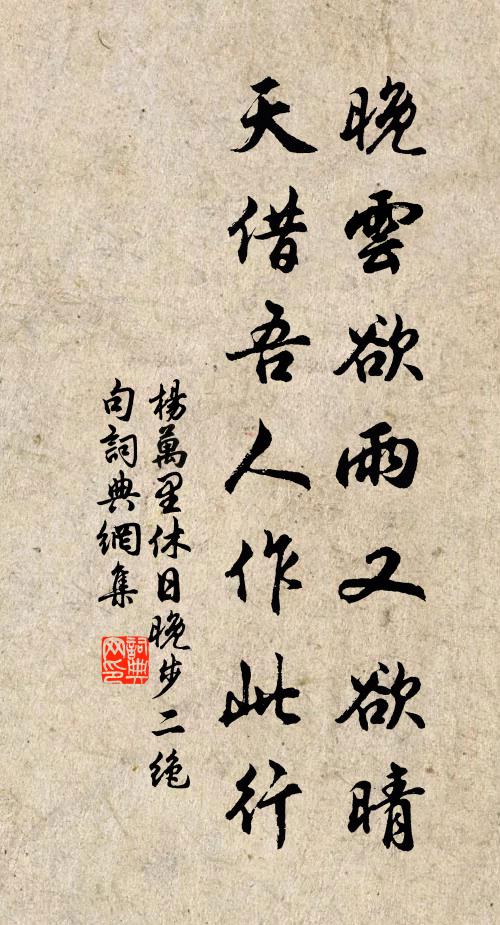 晚雲欲雨又欲晴
天借吾人作此行
楊萬里休日晚步二絕
句詞典網集
詞典
网印